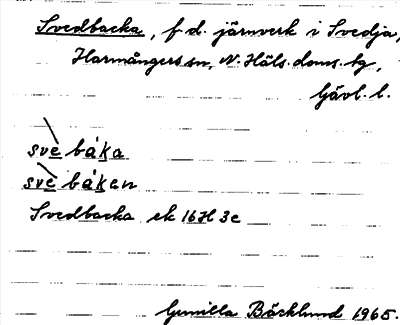 Svedbacka, f.d. järnverk i Svedja,
Harmångers sn, N. Häls. doms. tg,
Gävl. l.
svè báka
svè báken
Svedbacka ek 16H 3e
Gunilla Bäcklund 1965.